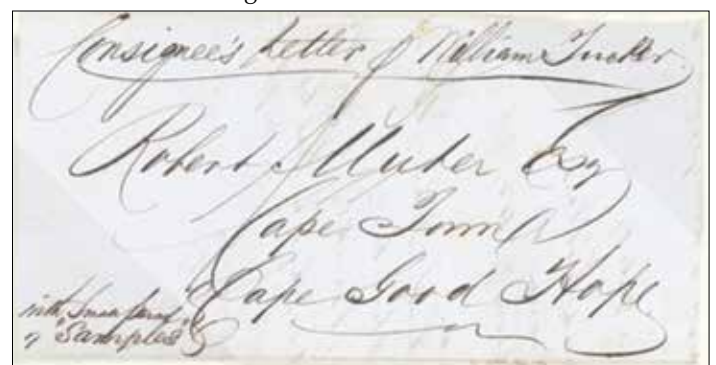 Consignee's Letter p William Tucker
Robert Muter Esq
Cape Town
Cape Good Hope
with Small
of "Samples"